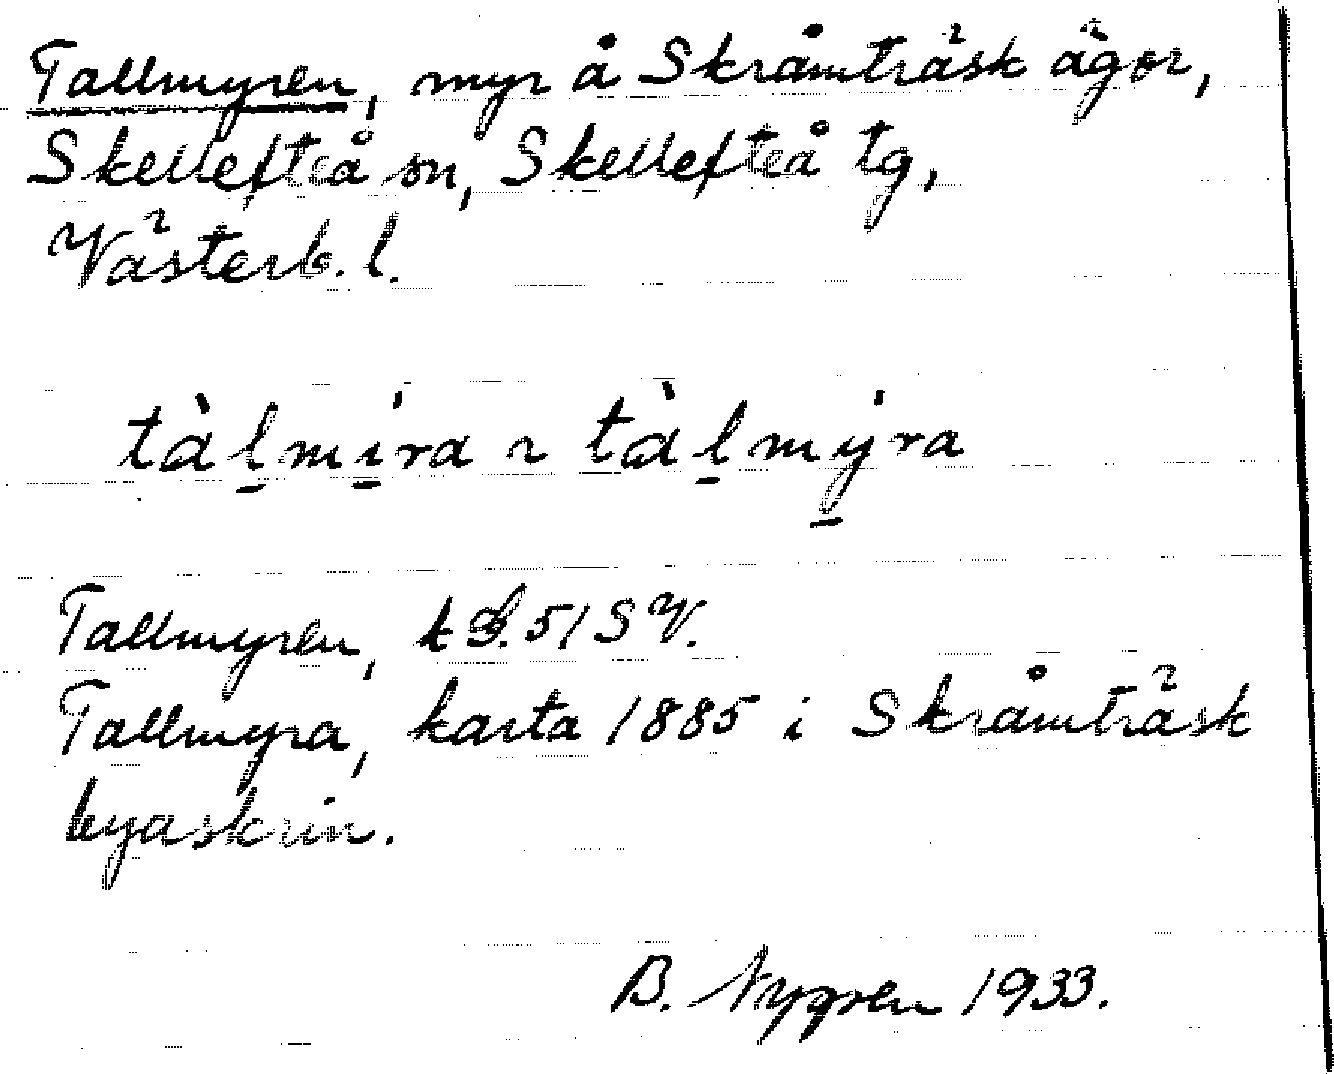 Tallmyren, myr å Skråmträsk ägor,
Skellefteå sn, Skellefteå tg,
Västerb. l.
tàl̠mi̠ra ~ tàl̠my̠ra
Tallmyren, 51 SV.
Tallmyra, karta 1885 i Skråmträsk
byaskrin.
B. Nygren 1933.